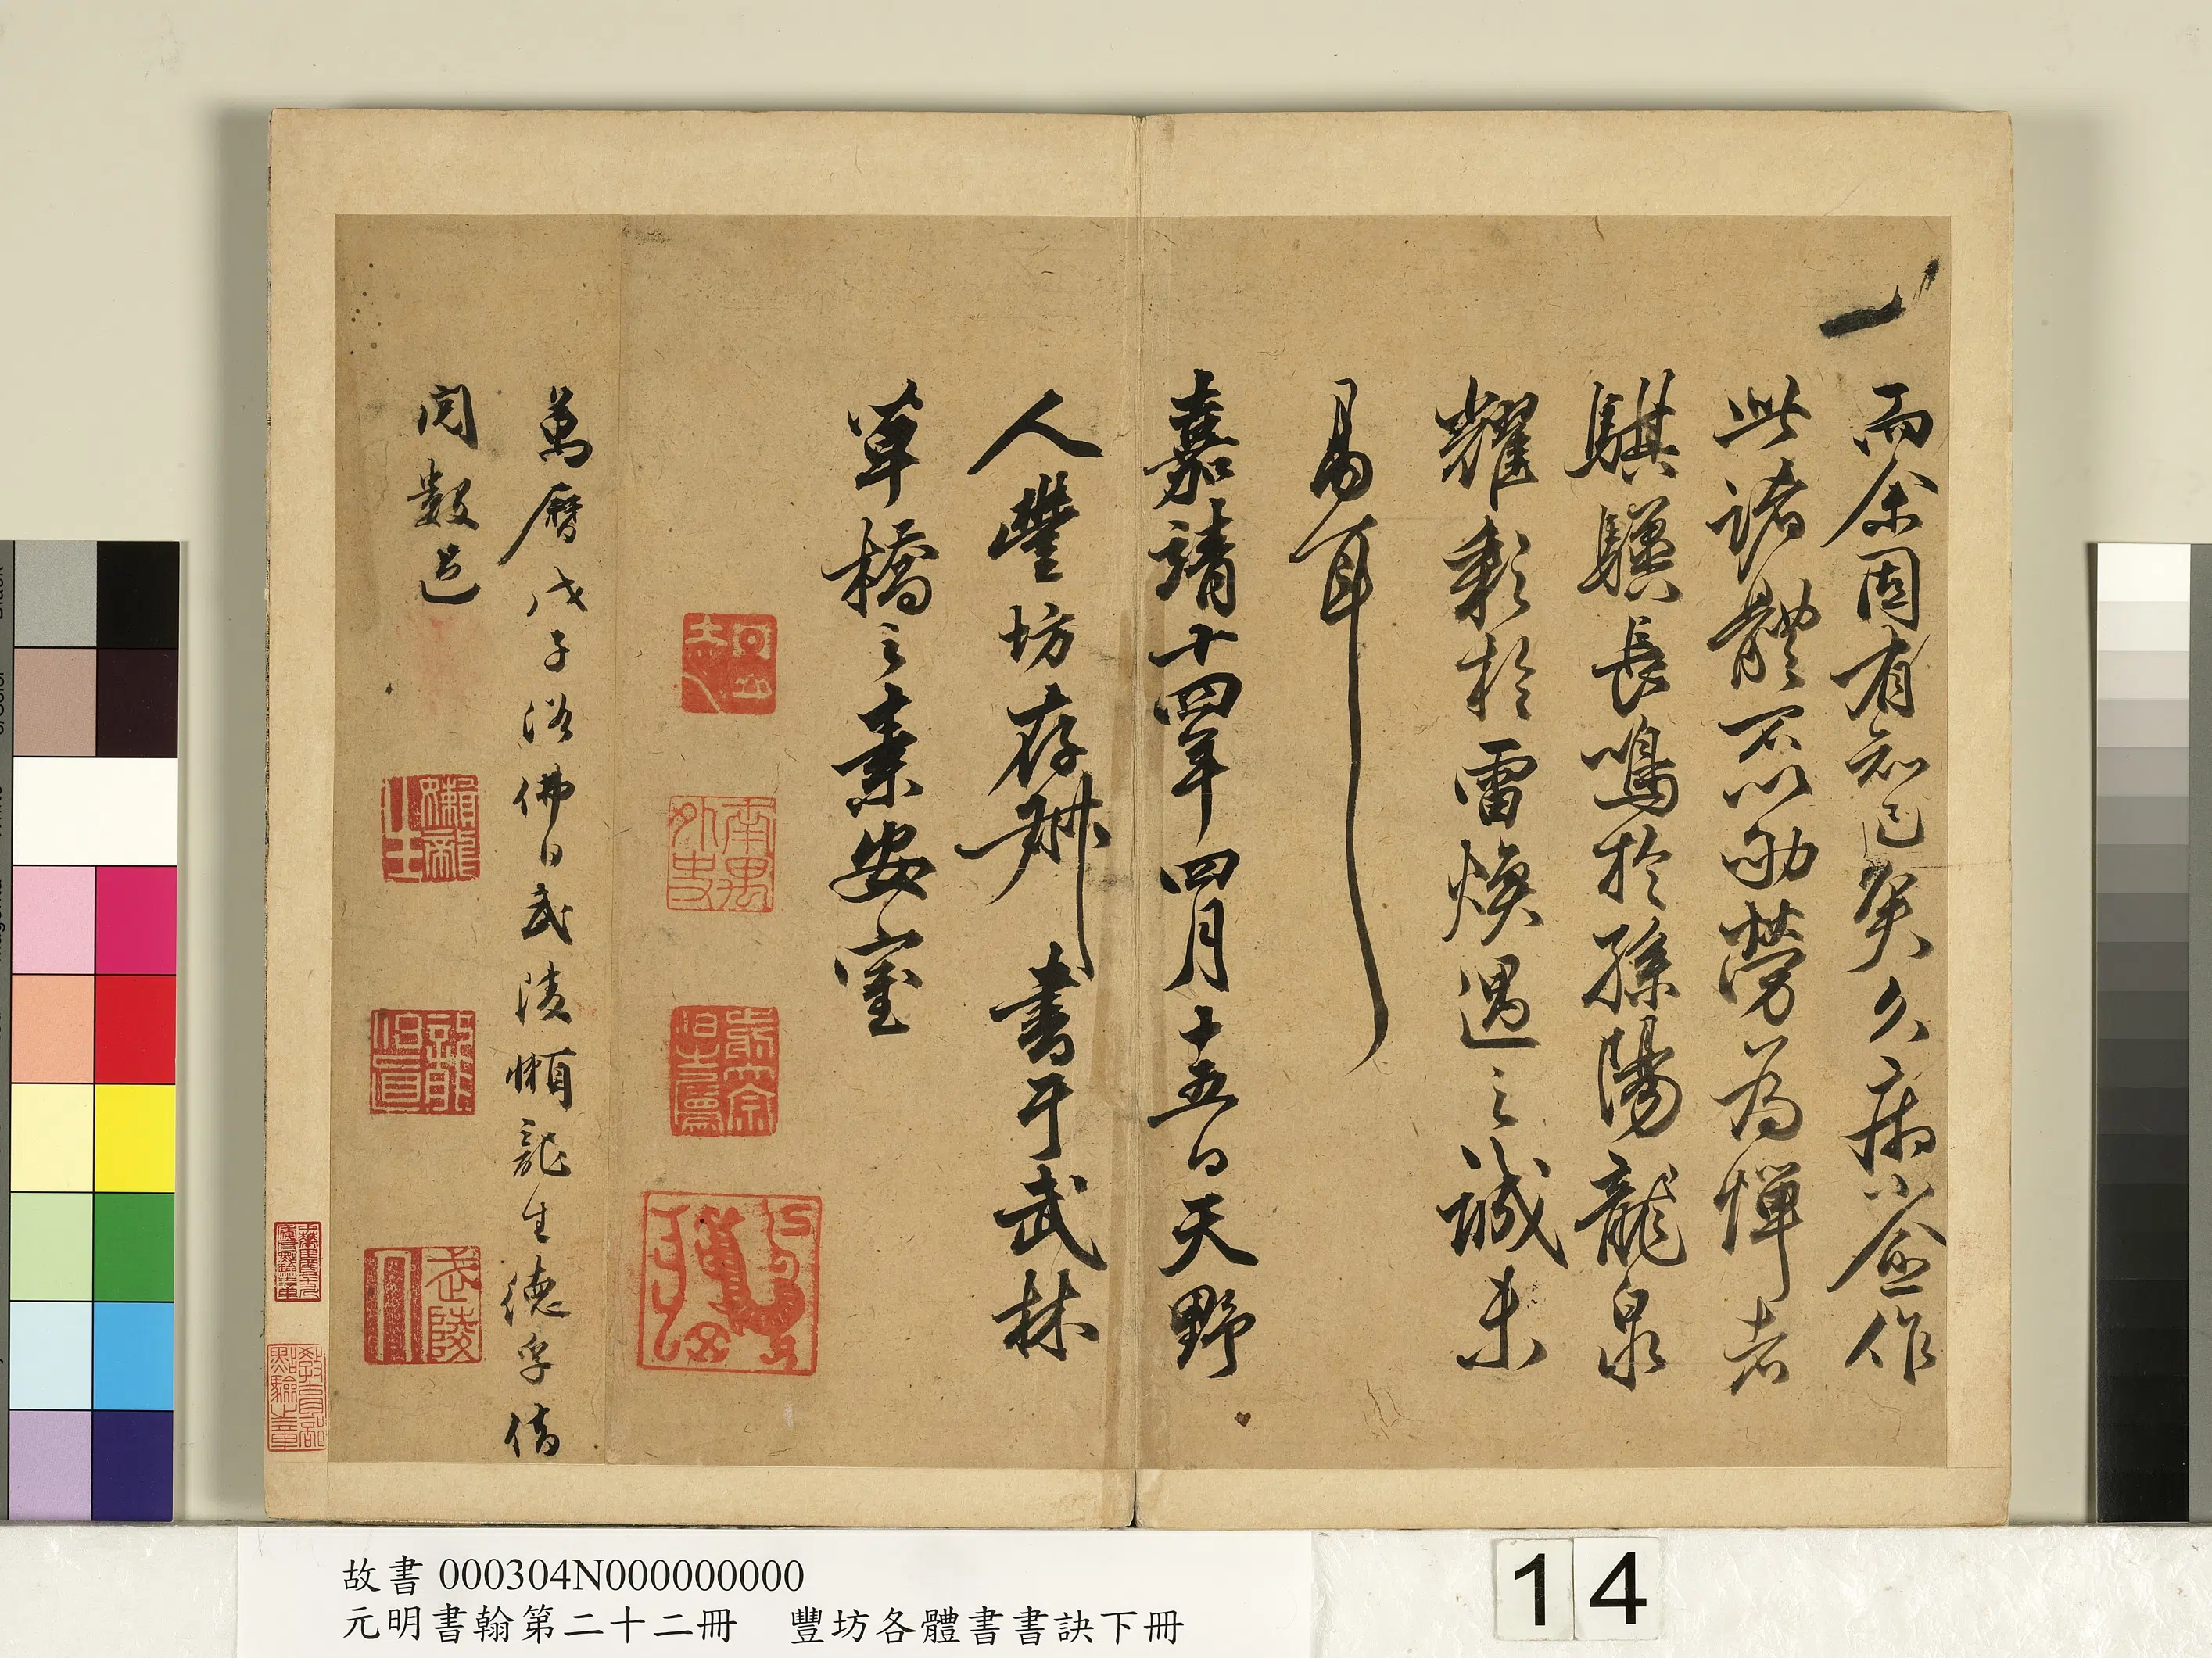 而余固有知己矣久病小愈作
此諸體不以劬勞為憚者
騏驥長鳴於孫陽龍泉
耀彩於雷煥遇之誠未
易耳
嘉靖十四年四月十五日天野
人豐坊存叔書于武林
草橋之素安室
萬曆戊子浴佛日武陵懶龍生德孚借
閱數過
懶龍
生
武陵
故書 000304N000000000
元明書翰第二十二冊 豐坊各體書書訣下冊
14